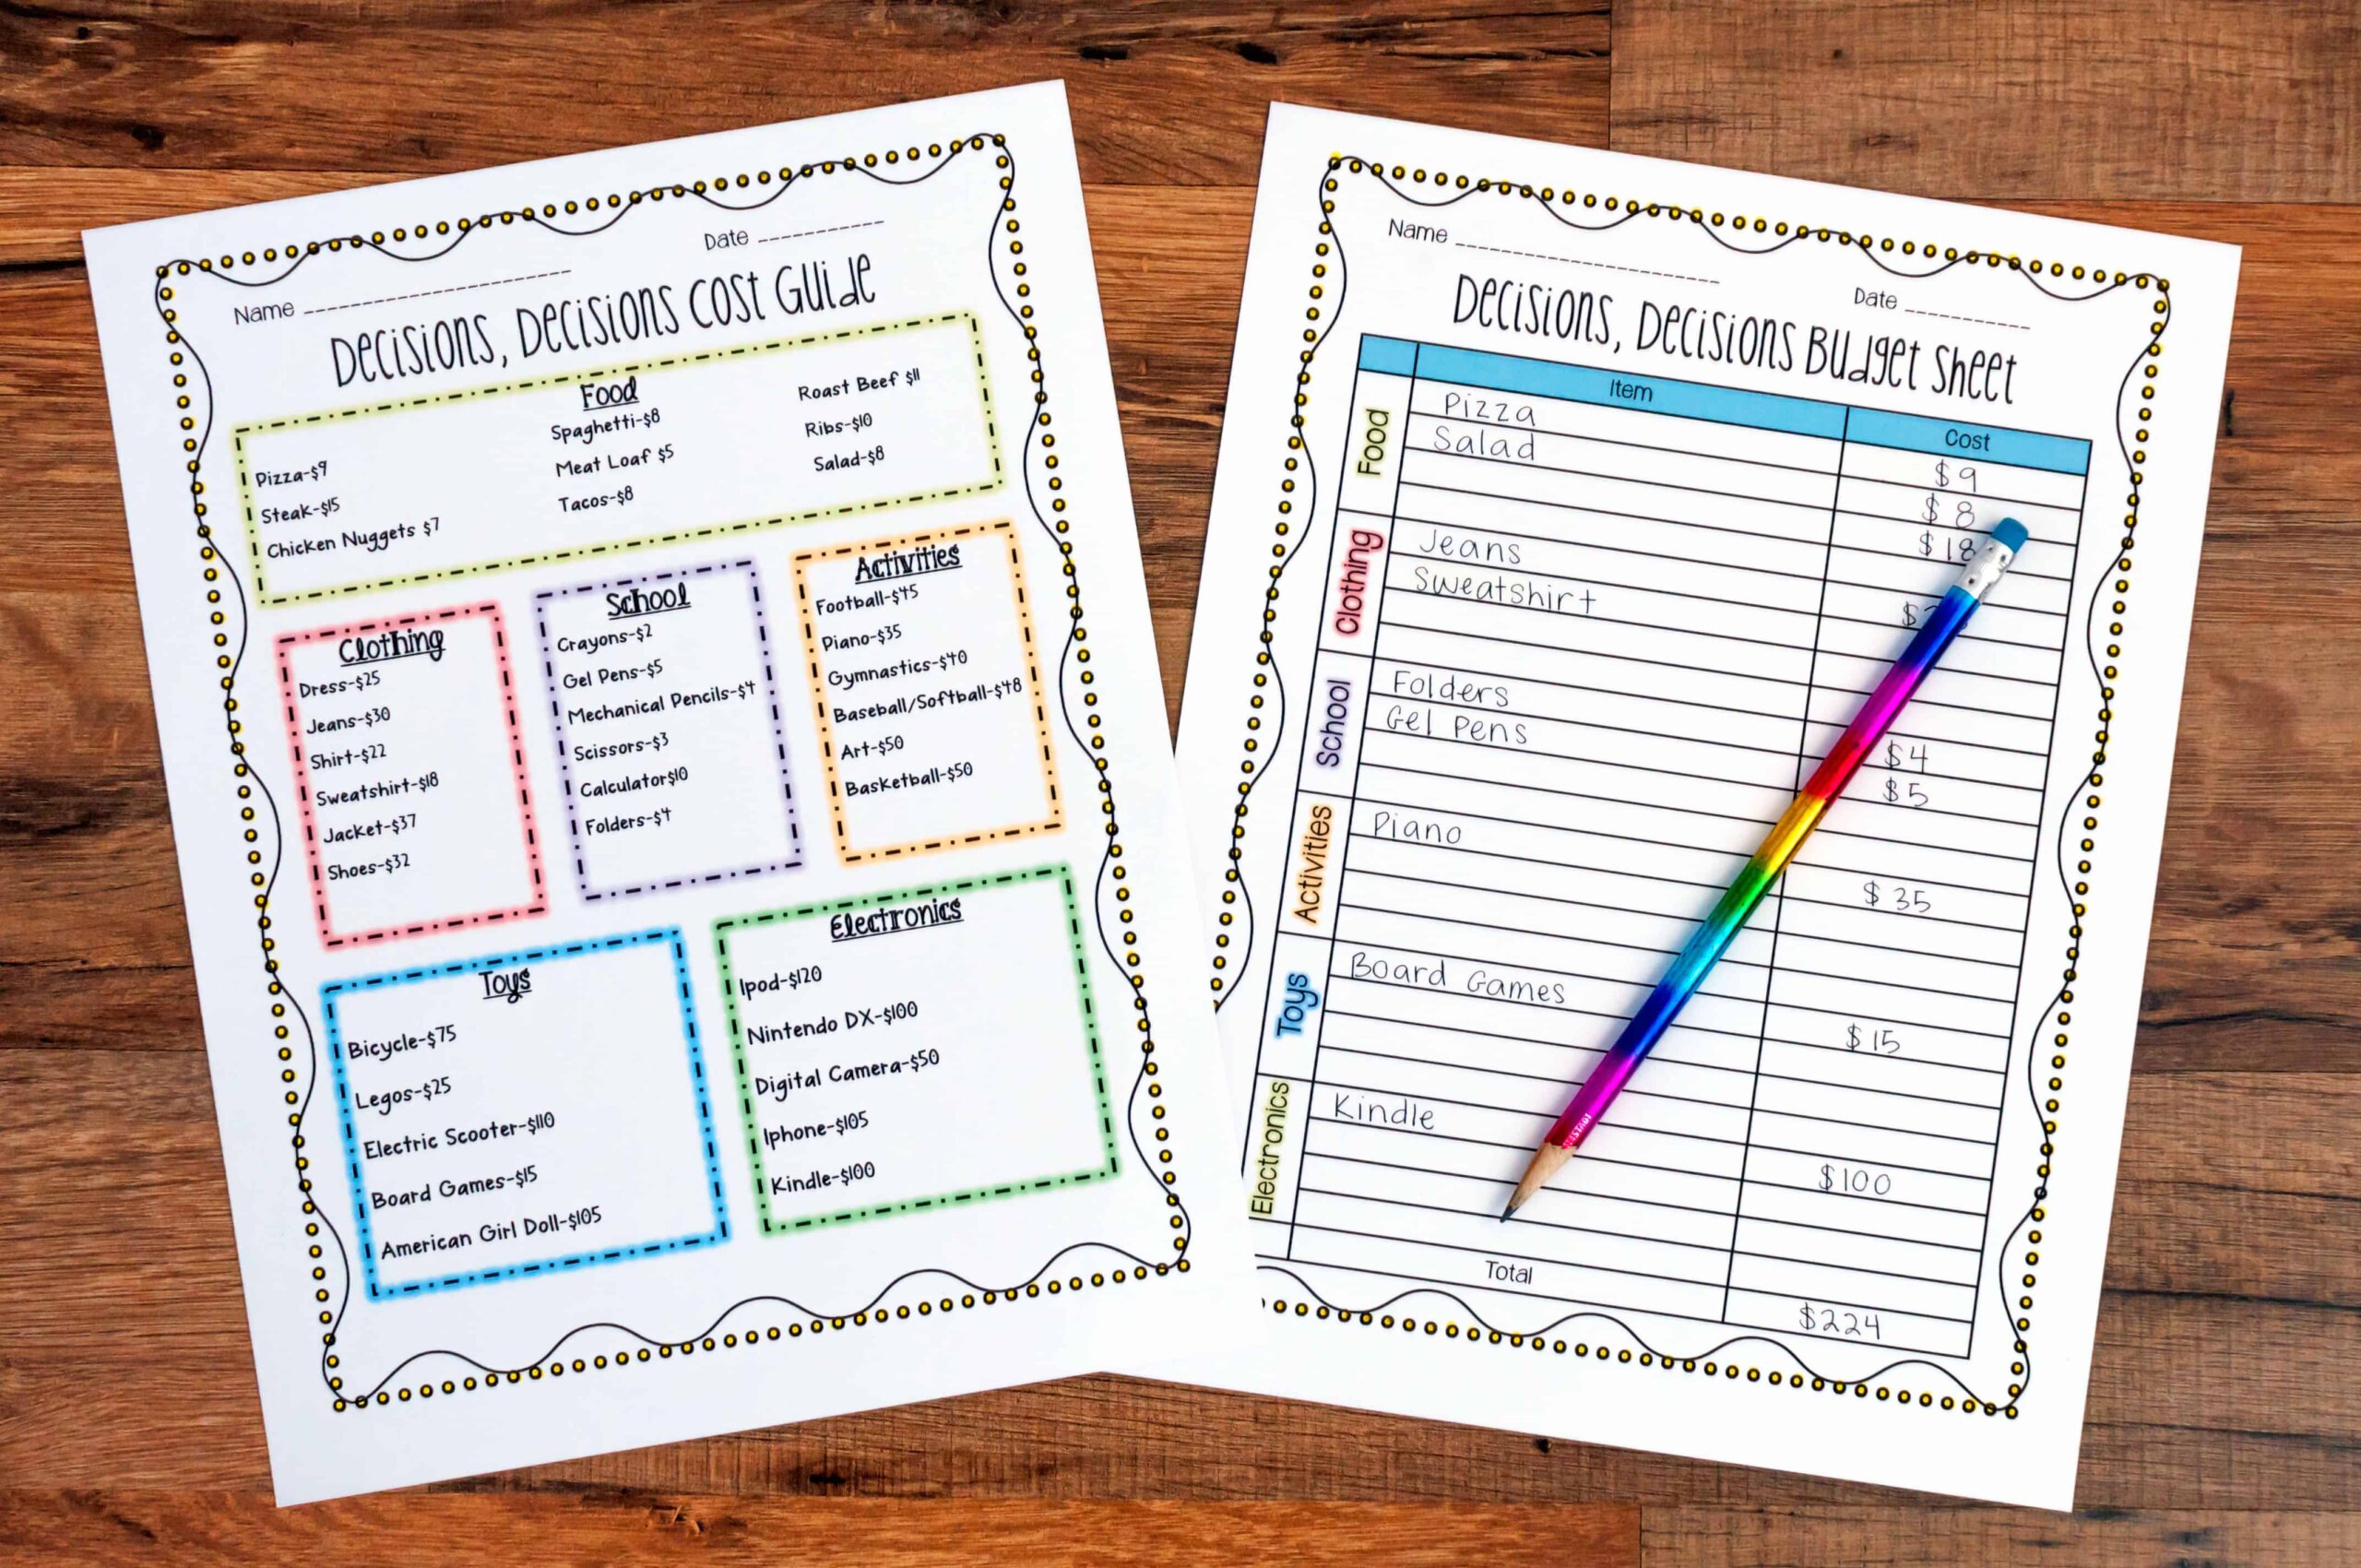 Name
Date
Decisions, Decisions Cost Guide
Food
Pizza-$9
Steak-$15
Chicken Nuggets $7
Spaghetti-$8
Meat Loaf $5
Tacos-$8
Roast Beef $11
Ribs-$10
Salad-$8
Clothing
Dress-$25
Jeans-$30
Shirt-$22
Sweatshirt-$18
Jacket-$37
Shoes-$32
School
Crayons-$2
Gel Pens-$5
Mechanical Pencils-$4
Scissors-$3
Calculator$10
Folders-$4
Activities
Football-$45
Piano-$35
Gymnastics-$40
Baseball/Softball-$48
Art-$50
Basketball-$50
Toys
Bicycle-$75
Legos-$25
Electric Scooter-$110
Board Games-$15
American Girl Doll-$105
Electronics
Ipod-$120
Nintendo DX-$100
Digital Camera-$50
Iphone-$105
Kindle-$100
Name
Date
Decisions, Decisions Budget Sheet
Item Cost
Food
Pizza $9
Salad $8
$18
Clothing
Jeans
Sweatshirt
School
Folders $4
Gel Pens $5
Activities
Piano $35
Toys
Board Games $15
Electronics
Kindle $100
Total $224